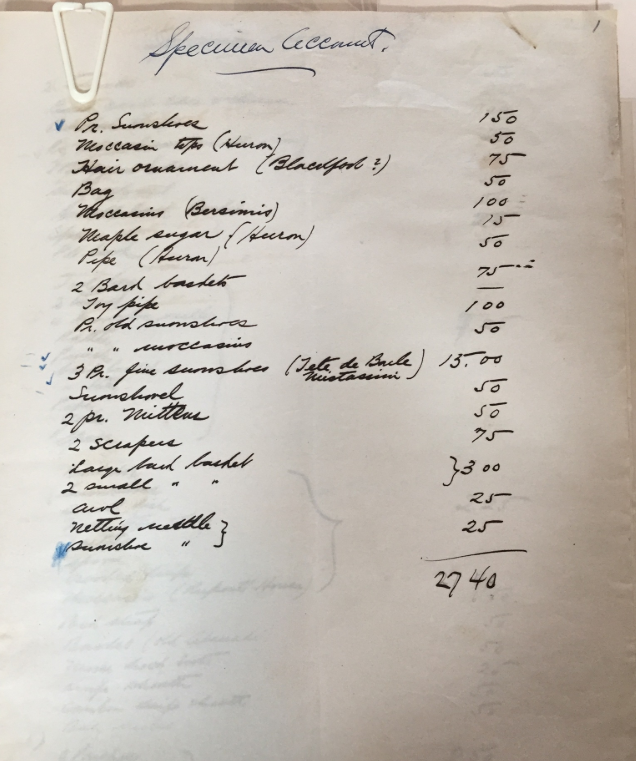 1
Specimen Account.
Pr. Snowshoes 150
Moccasin tops (Huron) 50
Hair ornament (Blackfoot?) 75
Bag 50
Moccasins (Bersimis) 100
Maple sugar (Huron) 15
Pipe (Huron) 50
2 Bark baskets 75
Toy pipe —
Pr. old snowshoes 100
" " moccasins 50
3 Pr. fine snowshoes (Tete de Boule Mistassini) 15.00
Snowshovel 50
2 pr. Mittens 50
2 Scrapers 75
Large bark basket } 3 00
2 small " "
awl 25
Netting needle } 25
Snowshoe "
2740